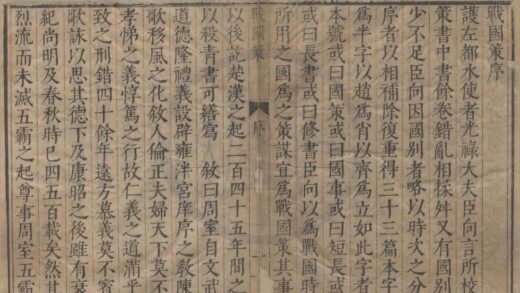 戰國策序
護左都水使者光祿大夫臣向言所校
策書中書餘卷錯亂相揉舛又有國別
少不足臣向因國別者略以時次之分
序者以相補除復重得三十三篇本字
爲半字以趙爲肖以齊爲立如此字者
本號或曰國策或曰國事或曰短長或
或曰長書或曰修書臣向以爲戰國時
所用之國爲之策謀宜爲戰國策其事
戰國策 序
以後訖楚漢之起二百四十五年間之
以殺青書可繕寫 敘曰周室自文武
道德隆禮義設辟雍泮宮庠序之教陳
歌移風之化敘人倫正夫婦天下莫不
孝悌之義惇篤之行故仁義之道滿乎
致之刑錯四十餘年遠方慕義莫不賓
歌詠以思其德下及康昭之後雖有衰
紀尚明及春秋時已四五百載矣然其
烈流而未滅五霸之起尊事周室五霸